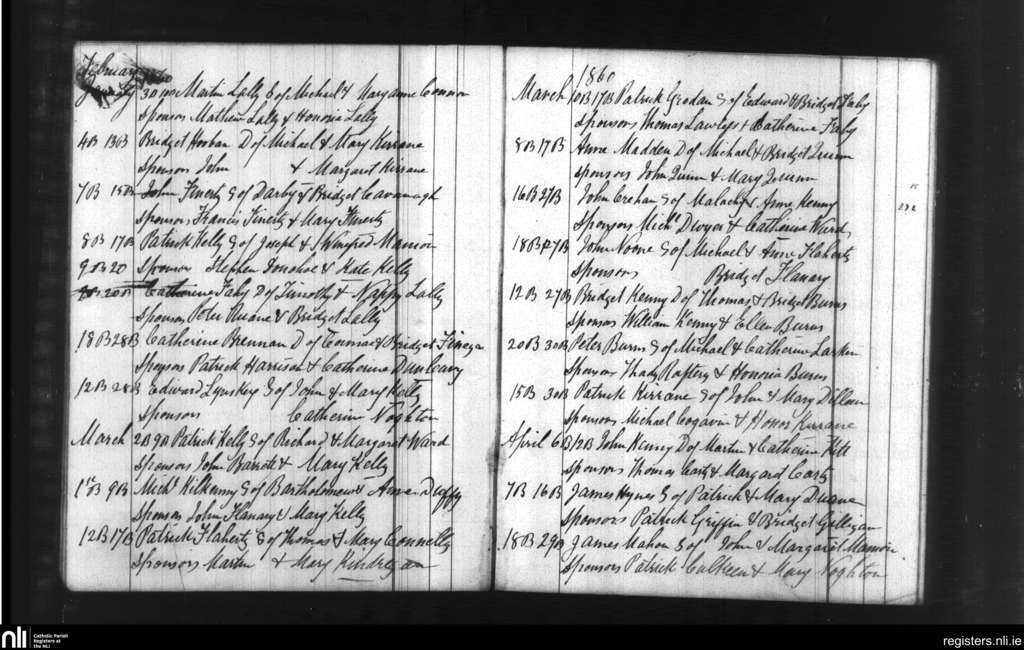 February 1860
January 30 Martin Lally S of Michael & Maryanne Connor
Sponsors Mathew Lally & Honoria Lally
4B 13B Bridget Horban D of Michael & Mary Kirrane
Sponsors John & Margaret Kirrane
7B 15B John Finerty S of Darby & Bridget Cavanagh
Sponsors Francis Finerty & Mary Finerty
8B 17B Patrick Kelly S of Joseph & Winifred Mannion
9B 20 Sponsor Stephen Donohoe & Kate Kelly
20B Catherine Fahy D of Timothy & Nappy Lally
Sponsors Peter Ruane & Bridget Lally
18B 28B Catherine Brennan D of & Bridget Finegan
Sponsors Patrick Harrison & Catherine Dunleavy
12B 28B Edward Lynskey S of John & Mary Kelly
Sponsors Catherin Noghton
March 2B 9B Patrick Kelly S of Richard & Margaret Ward
Sponsors John Barrott & Mary Kelly
1stB 9B Michl Kilkenny S of Bartholomew & Anne Duffy
Sponsors John Flanary & Mary Kelly
12B 17B Patrick Flaherty S of Thomas & Mary Connelly
Sponsors Martin & Mary Kindregan
1860
March 10B 17B Patrick Grodan S of Edward & Bridget Fahy
Sponsors Thomas Lawless & Catherine Fahy
8B 17B Anne Madden D of Michael & Bridget Quinn
Sponsors John Quinn & Mary Quinn
16B 27B John Crehan S of Malachy & Anne Kenny
232
Sponsors Michl Dwyer & Catherine Ward
18B 27B John Noone S of Michael & Anne Flaherty
Sponsors Bridget Flanery
12B 27B Bridget Kenny D of Thomas & Bridget Burns
Sponsors William Kenny & Ellen Burns
20B 30B Peter Burns S of Michael & Catherine Larkin
Sponsors Thady Raftery & Honoria Burns
15B 30B Patrick Kirrane S of John & Mary Dillon
Sponsors Michael Cogavin & Honor Kirrane
April 6B 12B John Kenny D of Martin & Catherin Kilt
Sponsors Thomas Carty & Margard Carty
7B 16B James Hynes S of Patrick & Mary Duane
Sponsors Patrick Griffin & Bridget Gilligan
18B 29B James Mahon S of John & Margaret Mannion
Sponsors Patrick Culkeen & Mary Noghton
nli Catholic Parish
Registers at
the NLI
registers.nli.ie